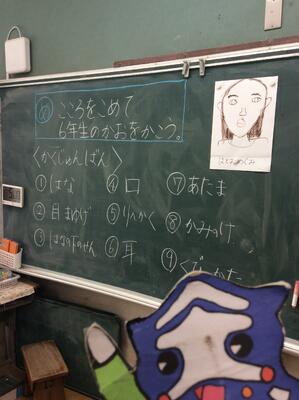 め こころをこめて
6年生のかおをかこう。
〈かくじゅんばん〉
①はな
②目 まゆげ
③はなの下のせん
④口
⑤りんかく
⑥耳
⑦あたま
⑧かみのけ
⑨くび・かた